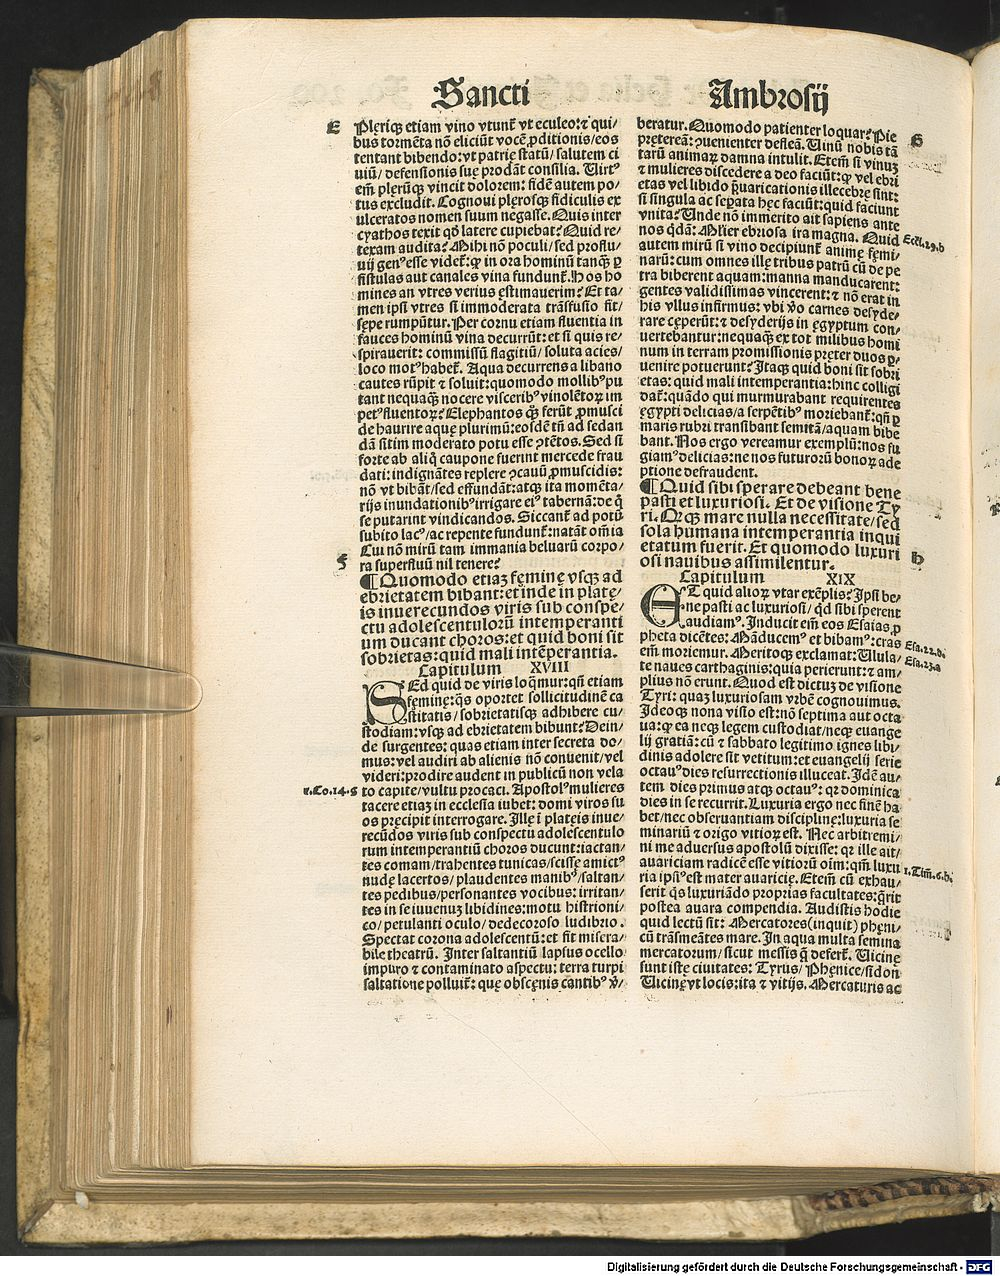 Sancti Ambrosij
E
Pleriqꝫ etiam vino vtunt᷑ vt eculeo:⁊ qui/
bus tormẽta nõ eliciũt vocẽ ꝓditionis/eos
tentant bibendo:vt patrię statũ/ salutem ci
uiũ/ defensionis suę prodãt consilia. Uirtꝰ
em̃ plerũqꝫ vincit dolorem: fidẽ autem po/
tus excludit. Cognoui plerosqꝫ fidiculis ex
ulceratos nomen suum negasse. Quis inter
cyathos texit qđ latere cupiebat? Quid re/
texam audita? Mihi nõ poculi/ sed profluu/
uij genꝰ esse videt᷑: qꝫ in ora hominũ tanqꝫ ꝑ
fistulas aut canales vina fundunt᷑. Hos ho
mines an vtres verius ęstimauerim? Et ta/
men ipsi vtres si immoderata trãsfusio fit/
sępe rumpũtur. Per cornu etiam fluentia in
fauces hominũ vina decurrũt: et si quis re/
spirauerit: commissũ flagitiũ/ soluta acies/
loco motꝰ habet᷑. Aqua decurrens a libano
cautes rũpit ⁊ soluit:quomodo mollibꝰ pu
tant nequaqꝫ nocere visceribꝰ vinolẽtoꝝ im
petꝰ fluentoꝝ? Elephantos qꝫ ferũt ꝓmusci
de haurire aquę plurimũ: eosdẽ tñ ad sedan
dã sitim moderato potu esse ꝯtẽtos. Sed si
forte ab aliq̃ caupone fuerint mercede frau
dati: indignãtes replere ꝯcauũ ꝓmuscidis:
nõ vt bibãt/ sed effundãt:atqꝫ ita momẽta/
rijs inundationibꝰ irrigare eiꝰ tabernã: de q̃
se putarint vindicandos. Siccant᷑ ad potũ
subito lacꝰ/ ac repente fundunt᷑:natãt om̃ia
Cui nõ mirũ tam immania beluarũ corpo/
F
ra superfluũ nil tenere?
¶ Quomodo etiaꝫ fęminę vsqꝫ ad
ebrietatem bibant: et inde in platę/
is inuerecundos viris sub conspe/
ctu adolescentulorũ intemperanti
um ducant choros: et quid boni sit
sobrietas: quid mali intẽperantia.
Capitulum XVIII
SEd quid de viris loq̃mur: qñ etiam
fęminę: q̃s oportet sollicitudinẽ ca
stitatis/ sobrietatisqꝫ adhibere cu/
stodiam: vsqꝫ ad ebrietatem bibunt? Dein/
de surgentes: quas etiam inter secreta do/
mus: vel audiri ab alienis nõ conuenit/ vel
videri: prodire audent in publicũ non vela
1.Co.14.g
to capite/ vultu procaci. Apostolꝰ mulieres
tacere etiaꝫ in ecclesia iubet: domi viros su
os pręcipit interrogare. Illę ĩ plateis inue/
recũdos viris sub conspectu adolescentulo
rum intemperantiũ choros ducunt: iactan/
tes comam/ trahentes tunicas/ scissę amictꝰ
nudę lacertos/ plaudentes manibꝰ/ saltan/
tes pedibus/ personantes vocibus: irritan/
tes in se iuuenuꝫ libidines: motu histrioni/
co/ petulanti oculo/ dedecoroso ludibrio.
Spectat corona adolescentũ: et fit misera/
bile theatrũ. Inter saltantiũ lapsus ocello
impuro ⁊ contaminato aspectu: terra turpi
saltatione polluit᷑: quę obscęnis cantibꝰ v̉/
beratur. Quomodo patienter loquar? Pie
G
pręteream: ꝯuenienter defleã. Uinũ nobis tã
tarũ animaꝝ damna intulit. Etem̃ si vinuꝫ
⁊ mulieres discedere a deo faciũt: qꝫ vel ebri
etas vel libido p̃uaricationis illecebrę sint:
si singula ac sepata hęc faciũt: quid faciunt
vnita? Unde nõ immerito ait sapiens ante
nos q̃dã: Mlier ebriosa ira magna. Quid
Eccl.29.b
autem mirũ si vino decipiunt᷑ animę fęmi/
narũ: cum omnes illę tribus patrũ cũ de pe
tra biberent aquam: manna manducarent:
gentes validissimas vincerent: ⁊ nõ erat in
his vllus infirmus: vbi v̉o carnes desyde/
rare cęperũt: ⁊ desyderijs in ęgyptum con/
uertebantur: nequaqꝫ ex tot milibus homi
num in terram promissionis pręter duos ꝑ/
uenire potuerunt? Itaqꝫ quid boni sit sobri
etas: quid mali intemperantia: hinc colligi
dat᷑: quãdo qui murmurabant requirentes
ęgypti delicias/ a serpẽtibꝰ moriebant᷑: qñ ꝑ
maris rubri transibant semitã/ aquam bibe
bant. Nos ergo vereamur exemplũ: nos fu
giamꝰ delicias: ne nos futurorũ bonoꝝ ade
ptione defraudent.
¶ Quid sibi sperare debeant bene
pasti et luxuriosi. Et de visione Ty
ri. Qꝫ mare nulla necessitate/ sed
sola humana intemperantia inqui
etatum fuerit. Et quomodo luxuri
h
osi nauibus assimilentur.
Capitulum XIX
ET quid alioꝝ vtar exẽplis? Ipsi be/
ne pasti ac luxuriosi/ qđ sibi sperent
audiamꝰ. Inducit em̃ eos Esaias ꝓ
pheta dicẽtes: Mãducemꝰ et bibamꝰ: cras
Esa.22.d.
em̃ moriemur. Meritoqꝫ exclamat: Ulula/
Esa.23.a
te naues carthaginis: quia perierunt: ⁊ am/
plius nõ erunt. Quod est dictuꝫ de visione
Tyri: quaꝫ luxuriosam vrbẽ cognouimus.
Ideoqꝫ nona visio est: nõ septima aut octa
ua: qꝫ ea neqꝫ legem custodiat/ neqꝫ euange
lij gratiã: cũ ⁊ sabbato legitimo ignes libi/
dinis adolere sit vetitum: et euangelij serie
octauꝰ dies resurrectionis illuceat. Idẽ au/
tem dies primus atqꝫ octauꝰ: qꝛ dominica
dies in se recurrit. Luxuria ergo nec finẽ ha
bet/ nec obseruantiam disciplinę: luxuria se
minariũ ⁊ origo vitioꝝ est. Nec arbitremi/
ni me aduersus apostolũ dixisse: qꝛ ille ait/
auariciam radicẽ esse vitiorũ oĩm: qm̃ luxu
1.Tim̃.6.b.
ria ipsiꝰ est mater auaricię. Etem̃ cũ exhau/
serit q̃s luxuriãdo proprias facultates: q̃rit
postea auara compendia. Audistis hodie
quid lectũ sit: Mercatores(inquit) phęni/
cũ trãsmeãtes mare. In aqua multa semina
mercatorum/ sicut messis q̃ defert᷑. Uicinę
sunt istę ciuitates: Tyrus/ Phęnice/ sidon
Uicinę vt locis: ita ⁊ vitijs. Mercaturis ac
Digitalisierung gefördert durch die Deutsche Forschungsgemeinschaft - DFG